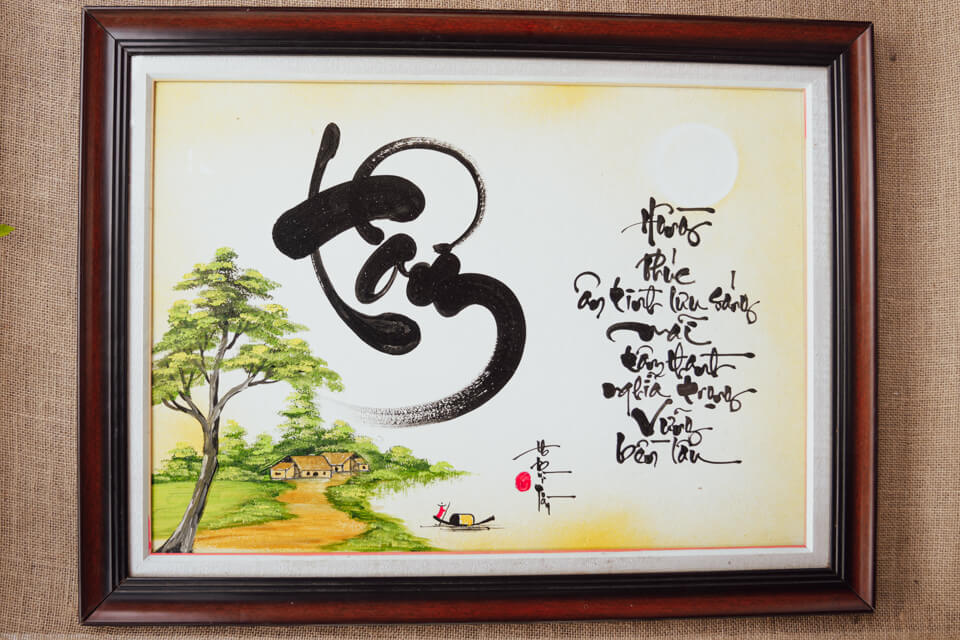 Tâm
Hồng
Phúc
ân tình lưu sáng
mãi
tâm thành
nghĩa trọng
vững
bền lâu